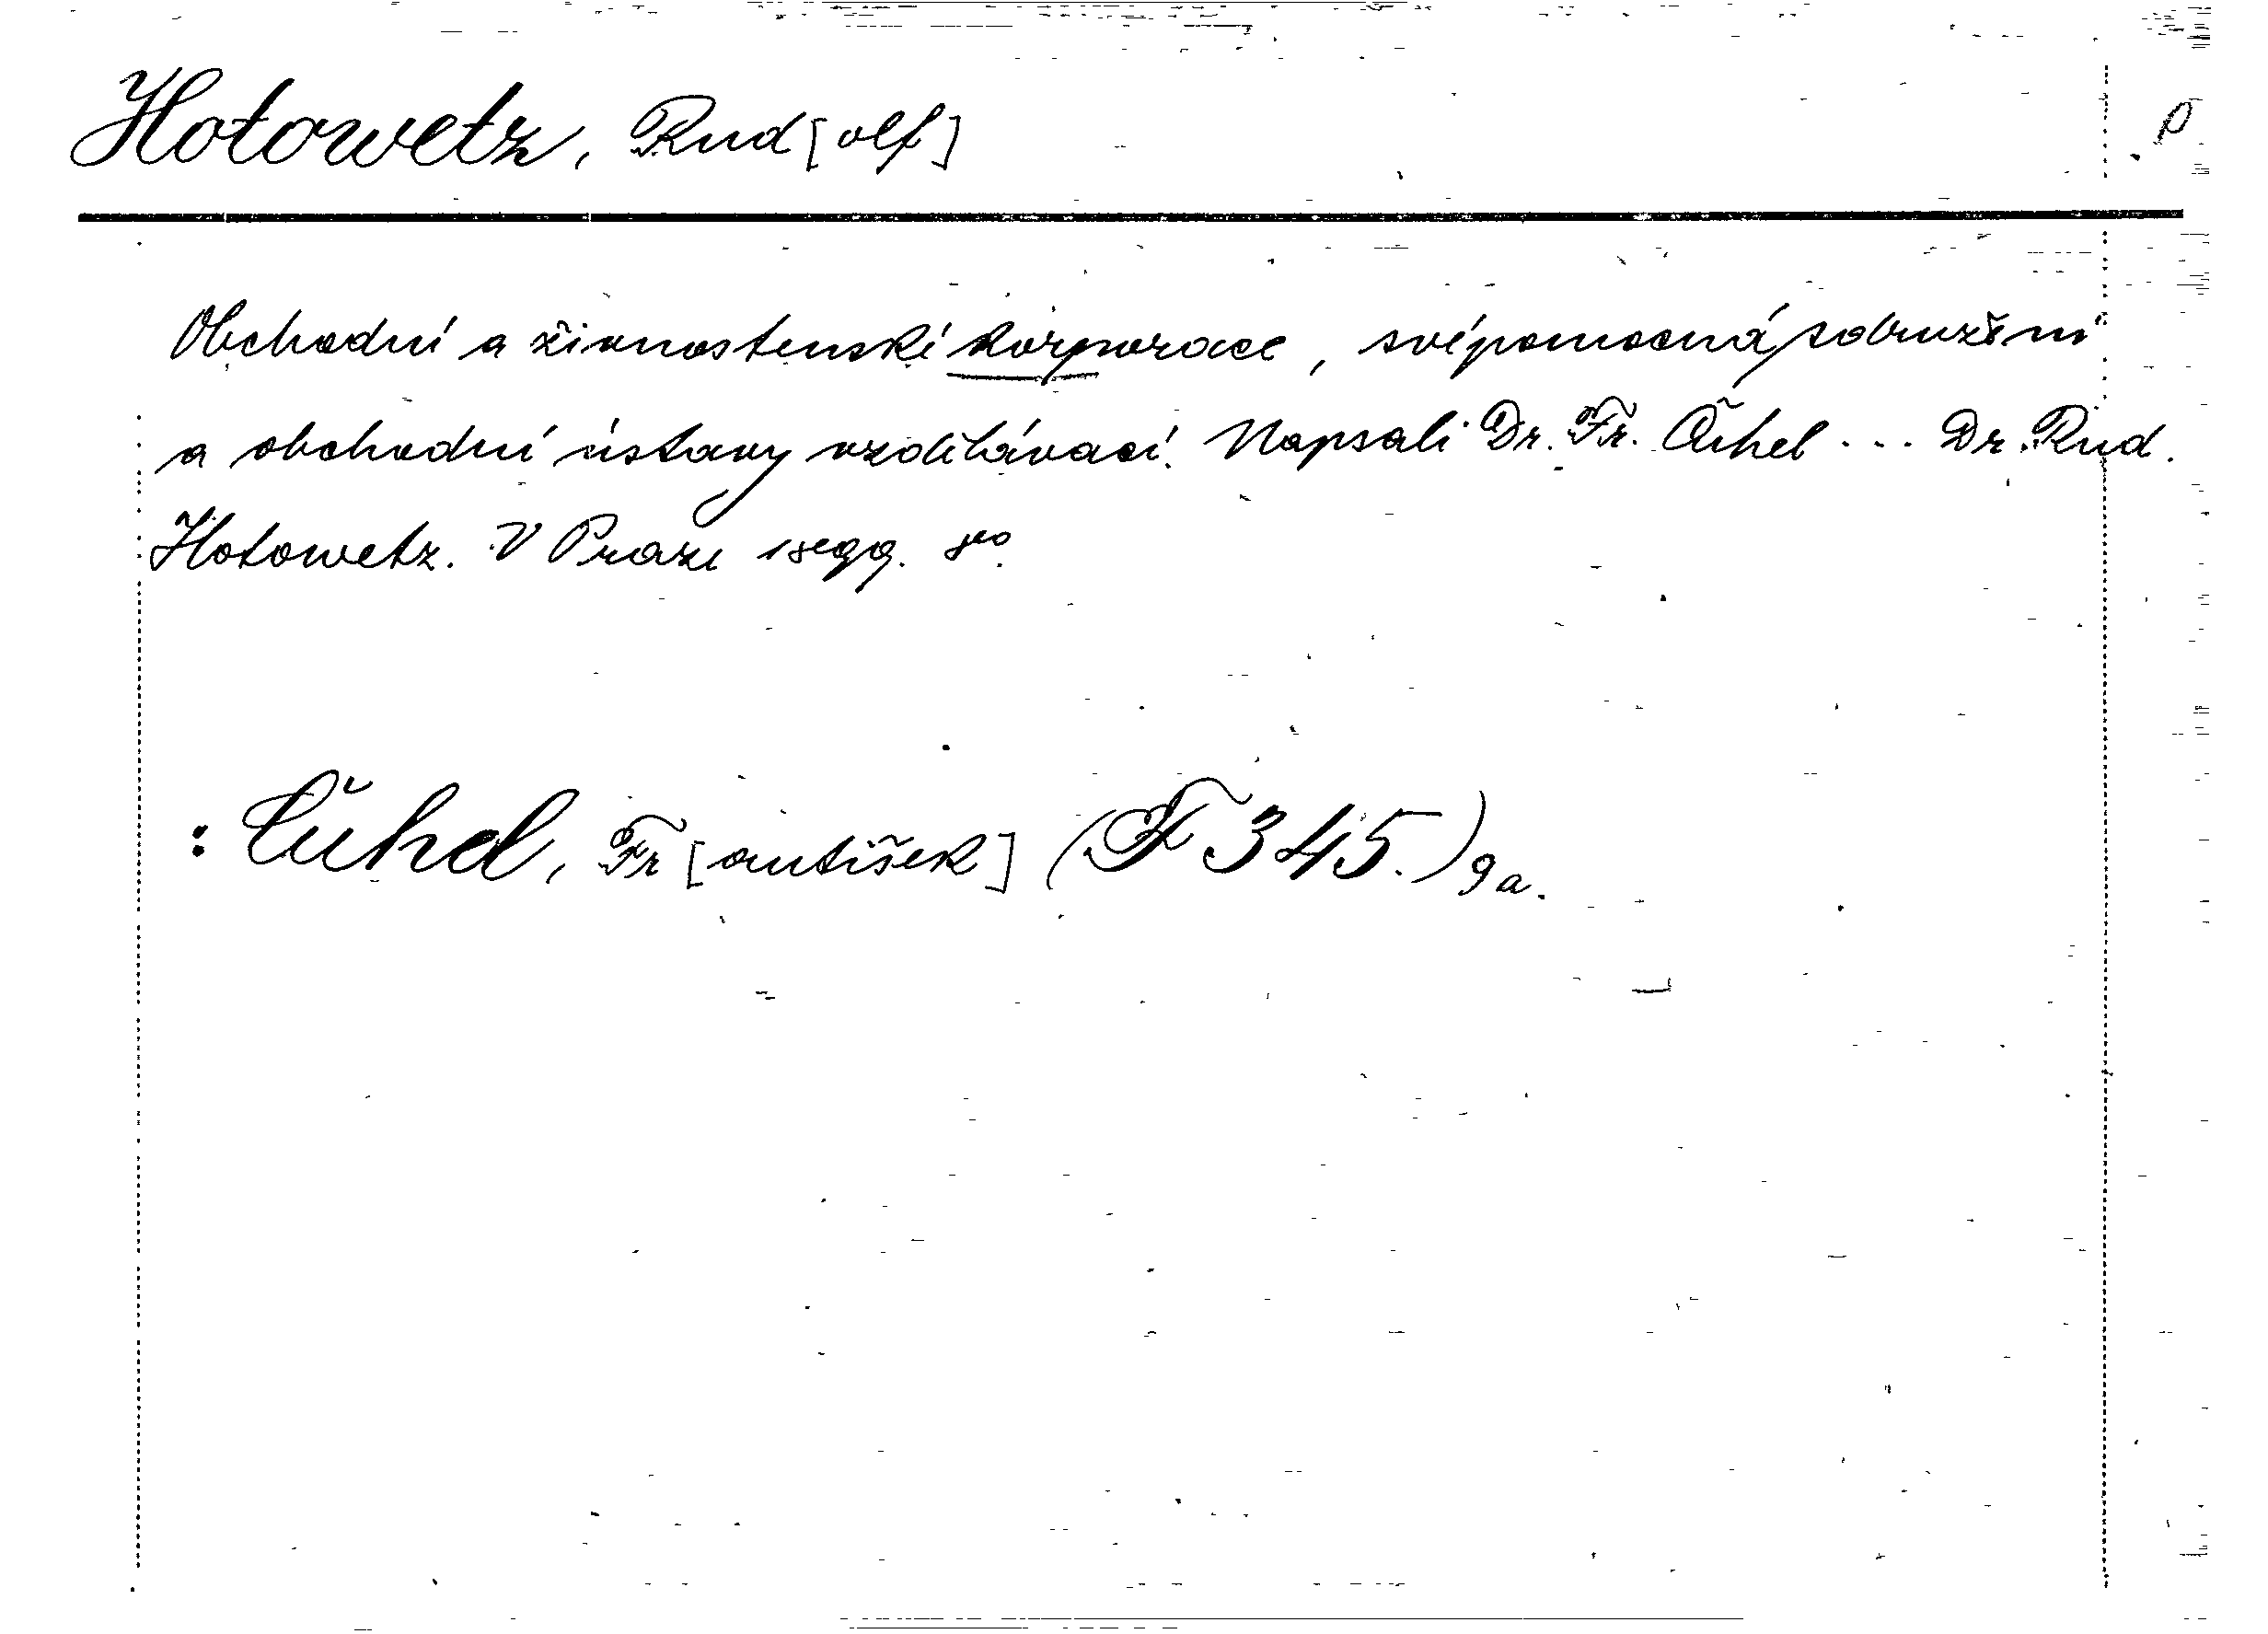 Hotowetz, Rud[olf]
ρ
Obchodní a živnostenské korporace, svépomocná sdružení
a obchodní ústavy vzdělávací. Napsali Dr. Fr. Čuhel ... Dr. Rud.
Hotowetz. V Praze 8º.
: Čuhel, Fr[antišek] (F 345.) 9a.